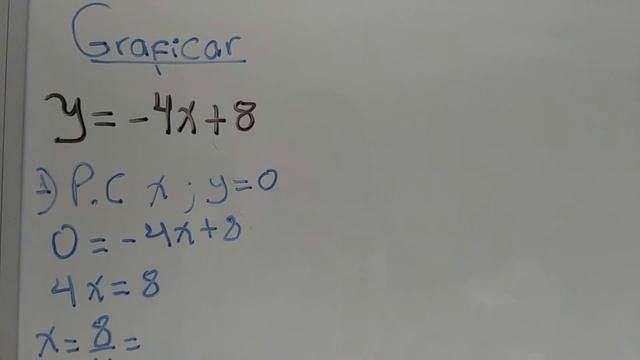 Graficar
y = -4x + 8
1) P.C x ; y = 0
0 = -4x + 8
4x = 8
x = 8/ =